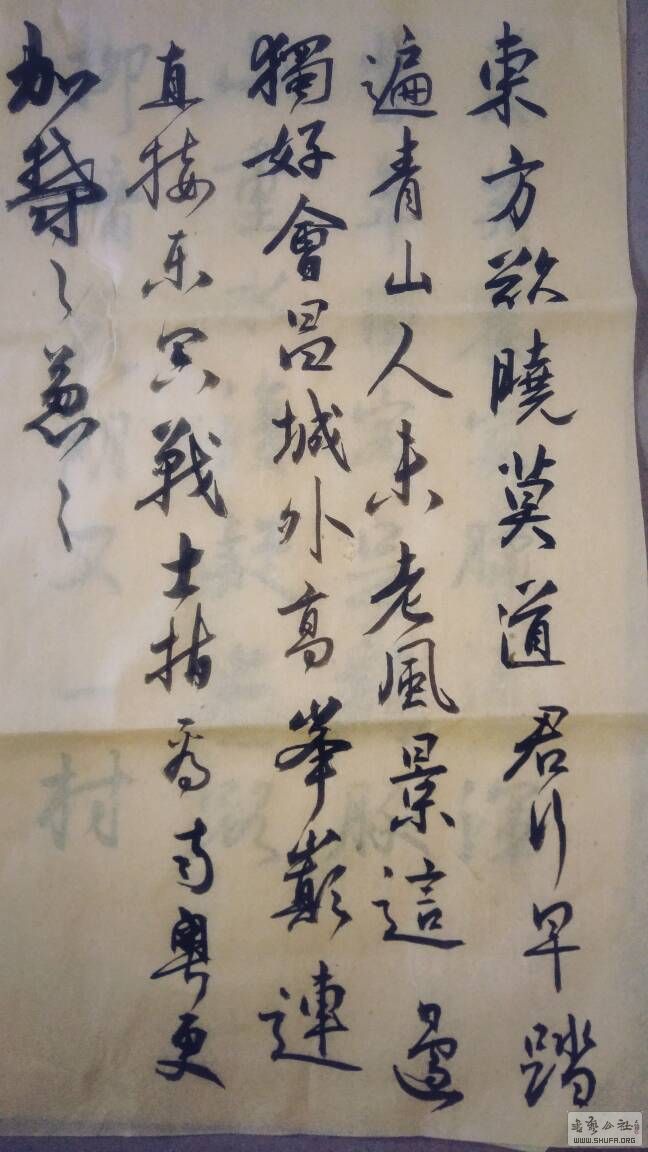 東方欲曉莫道君行早踏
遍青山人未老風景這邊
獨好會昌城外高峯巔連
直接东冥戰士指看南粵更
加鬱々葱々
书艺公社
WWW.SHUFA.ORG